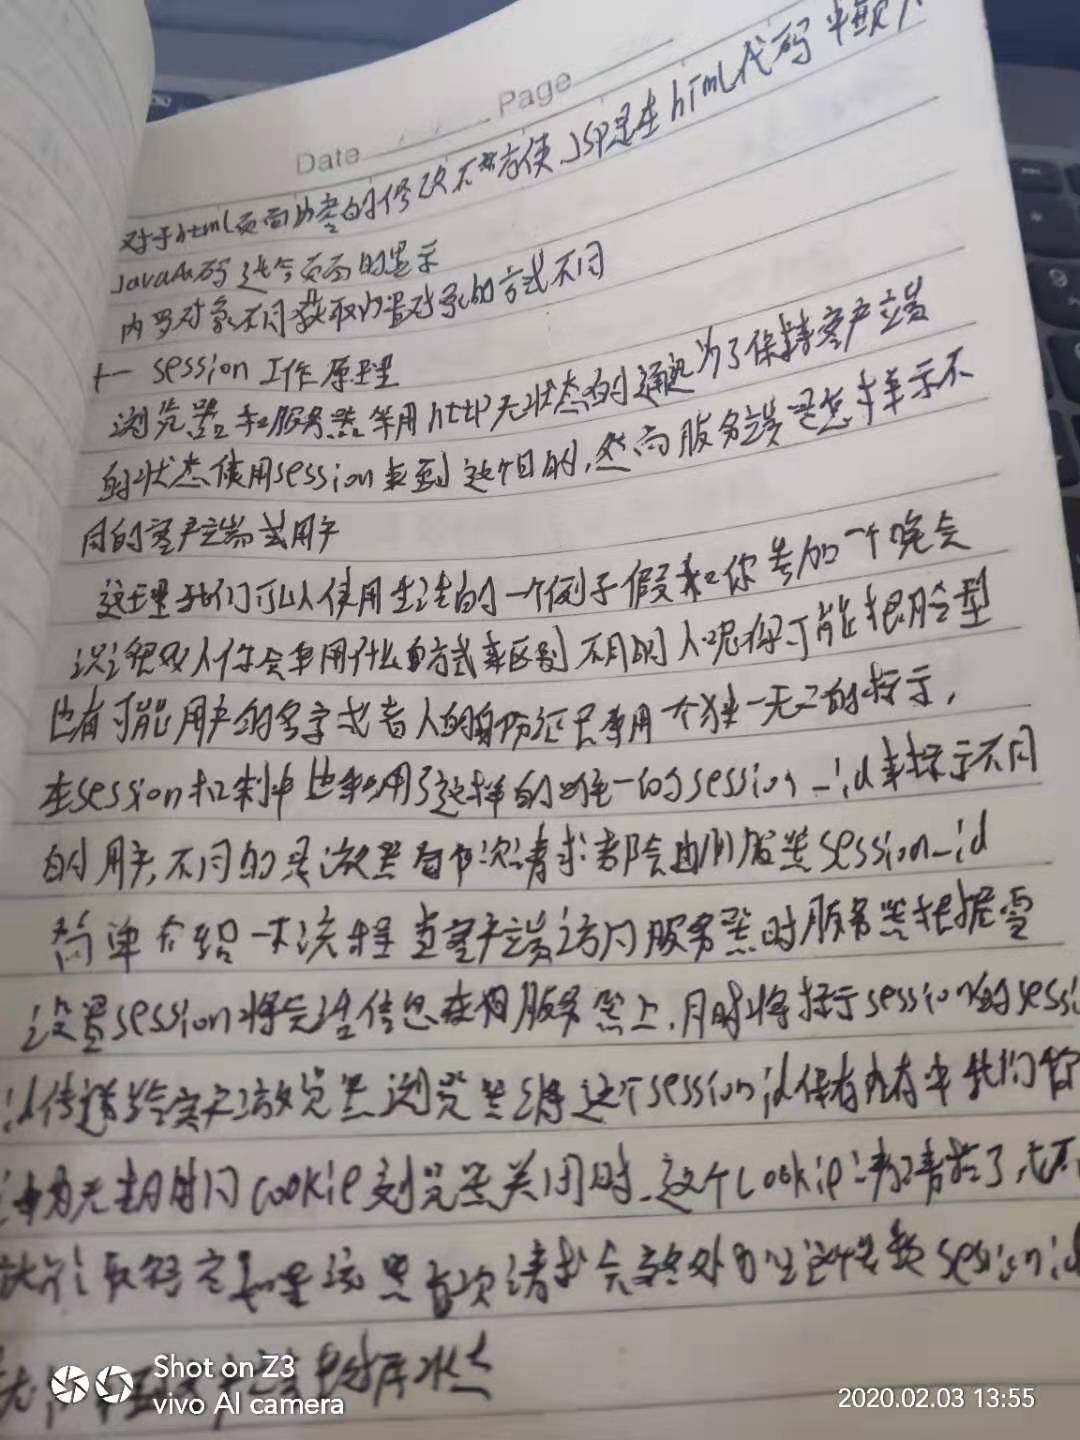 Date Page
对于html页面内容的修改不方便,JSP是在html代码中嵌入
Java代码进行页面的显示
内置对象不同获取内置对象的方式不同
十一 session 工作原理
浏览器和服务器采用http无状态的通迅为了保持客户端
的状态使用session来到这个目的,然而服务端是怎样示不
同的客户端或用户
这里我们可以使用生活的一个例子假和你参加一个晚会
认识很多人你会采用什么的方式来区别不同的人呢你可能根脸型
也有可能用户的名字或者人的身份证只采用一个独一无二的标示,
在session机制中也采用了这样的唯一的session_id来标示不同
的用户,不同的是浏览器每次请求都会由服器session_id
简单介绍一下流程当客户端访问服务器时服务器根据需
设置session将会话信息在服务器上,同时将标示session的sessi
id传递给客户浏览器浏览器将这个session id保存内存中我们管
cookie 浏览器关闭时,这个Cookie
请求会 session id
Shot on Z3
vivo AI camera
2020.02.03 13:55